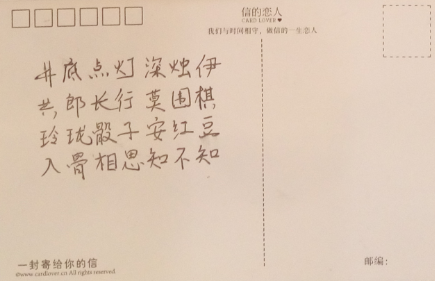 信的恋人
CARD LOVER♥
我们与时间相守，做信的一生恋人
井底点灯深烛伊
共郎长行莫围棋
玲珑骰子安红豆
入骨相思知不知
一封寄给你的信
©www.cardlover.cn All rights reserved.
邮编：